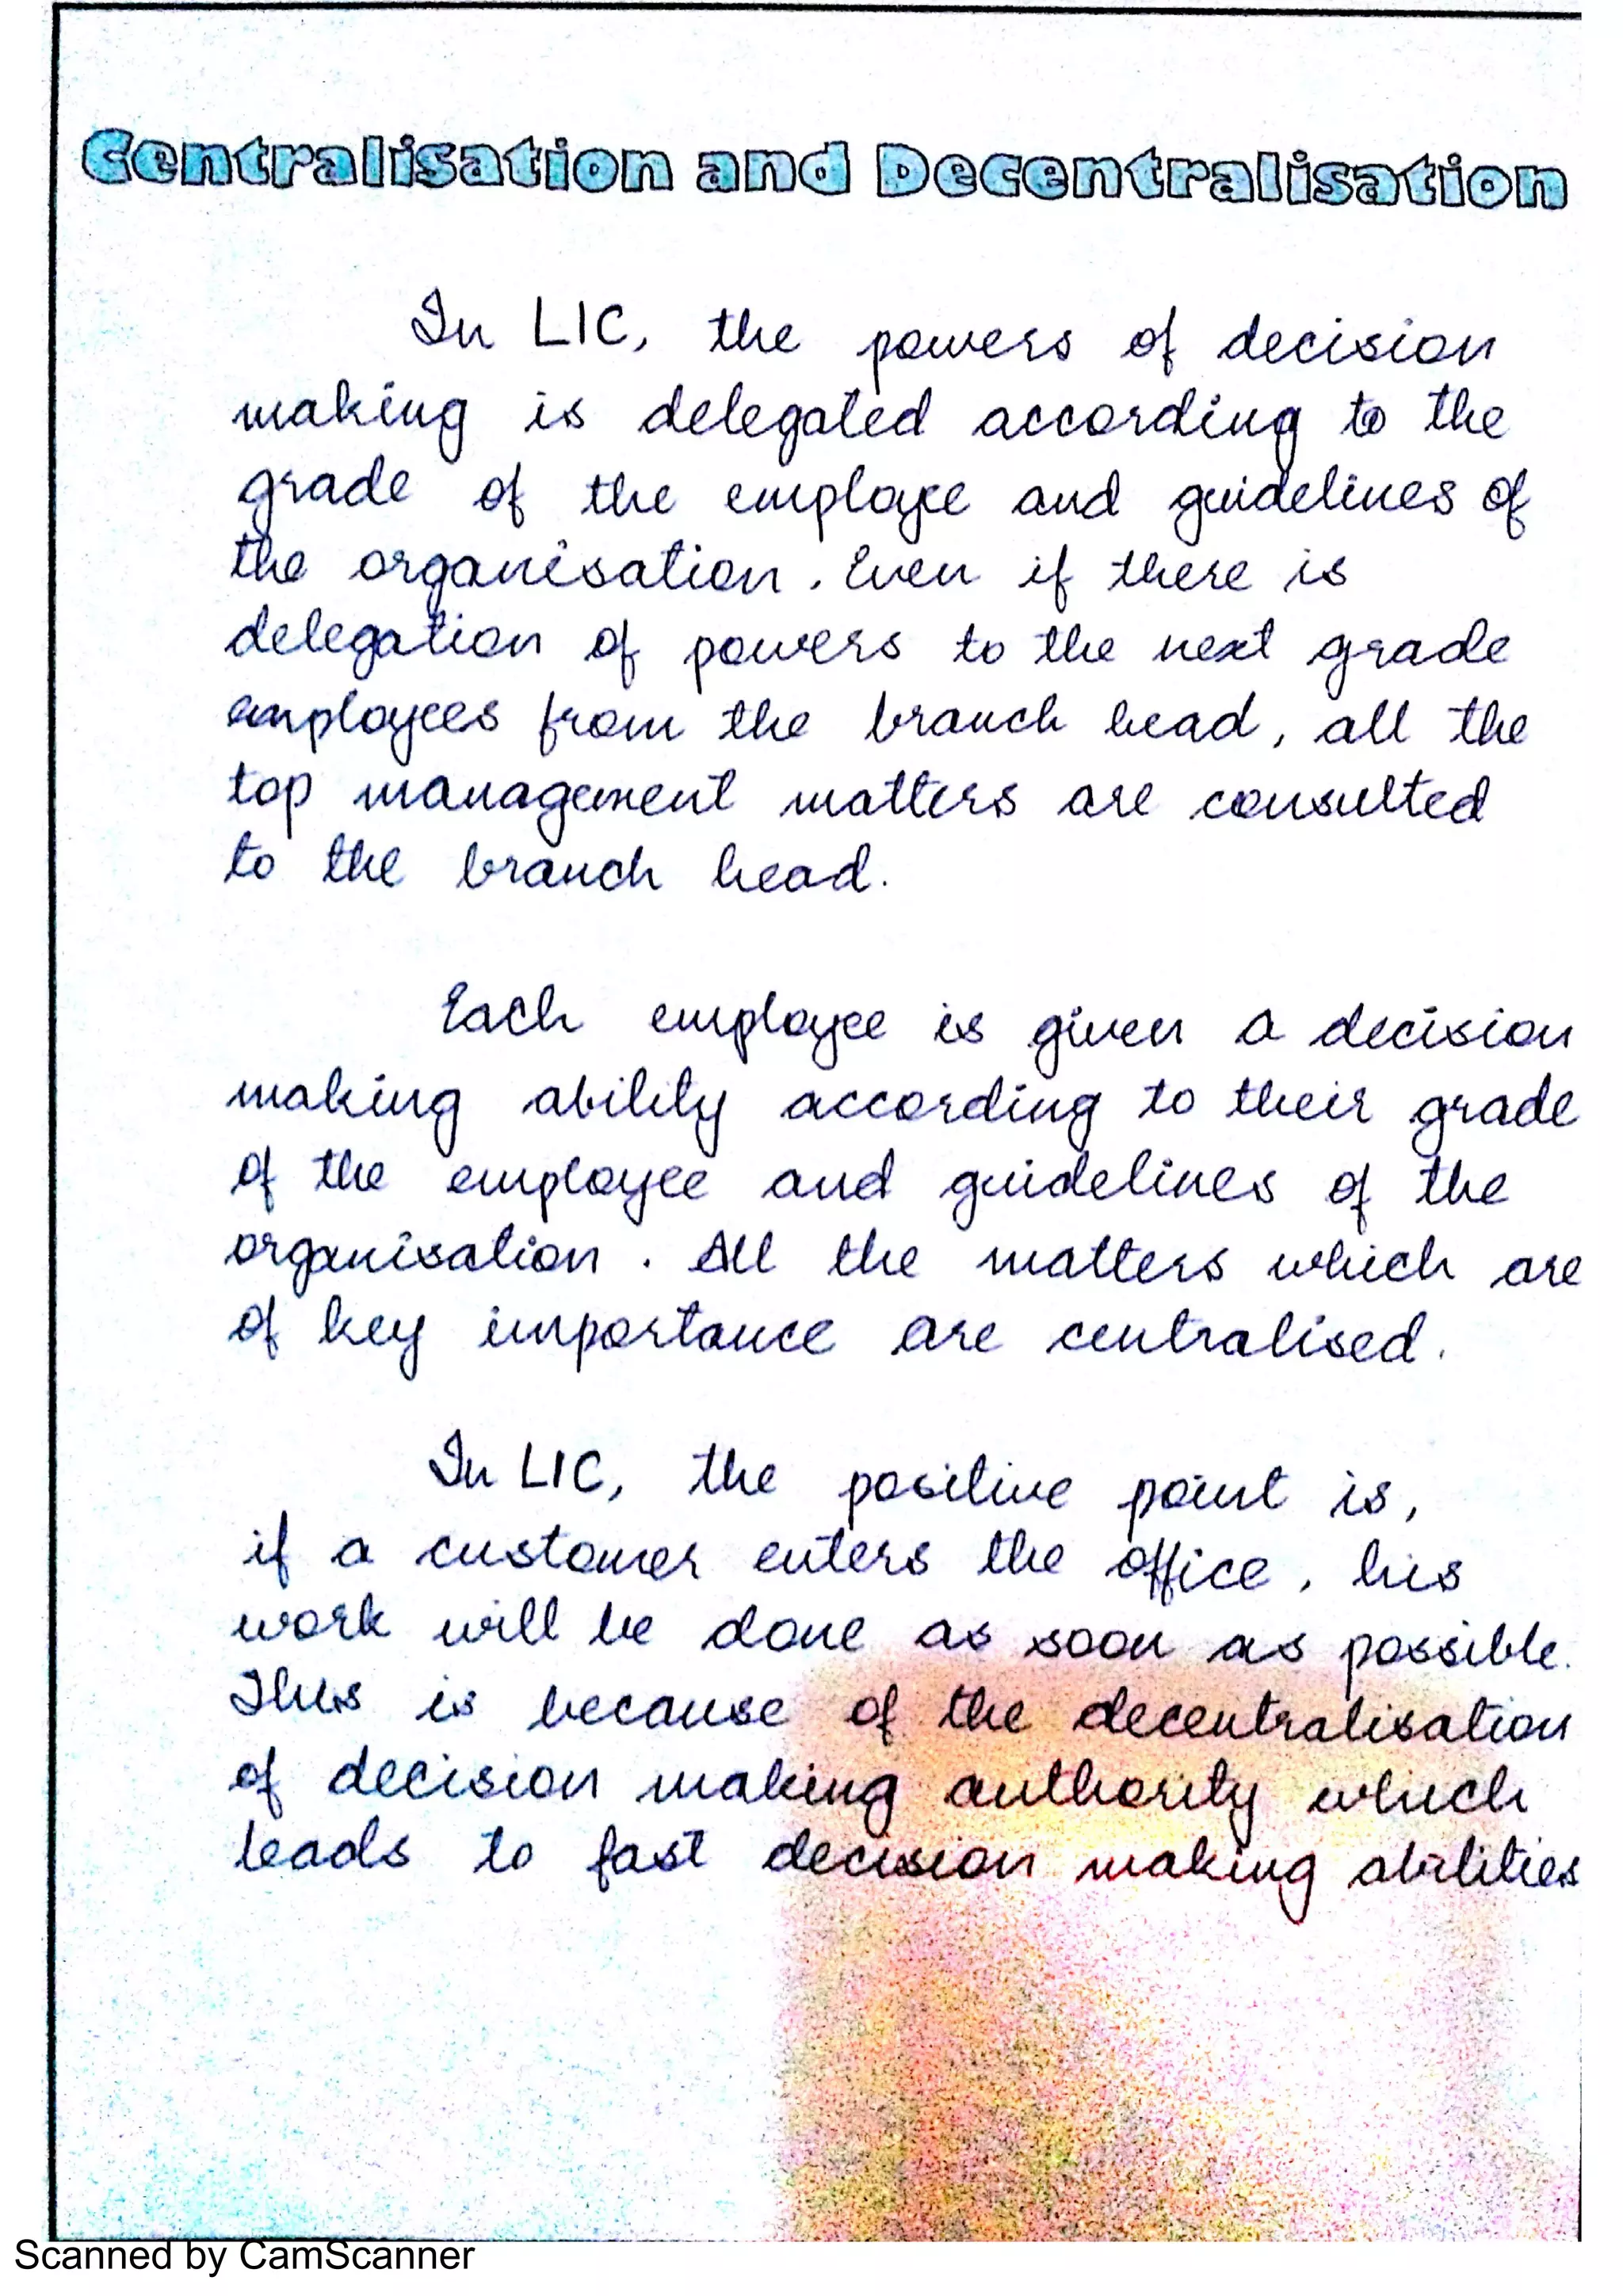 Centralisation and Decentralisation
In LIC, the powers of decision
making is delegated according to the
grade of the employee and guidelines of
the organisation. Even if there is
delegation of powers to the next grade
employees from the branch head, all the
top management matters are consulted
to the branch head.
Each employee is given a decision
making ability according to their grade
of the employee and guidelines of the
organisation. All the matters which are
of key importance are centralised.
In LIC, the positive point is,
if a customer enters the office, his
work will be done as soon as possible.
This is because of the decentralisation
of decision making authority which
leads to fast decision making abilities
Scanned by CamScanner